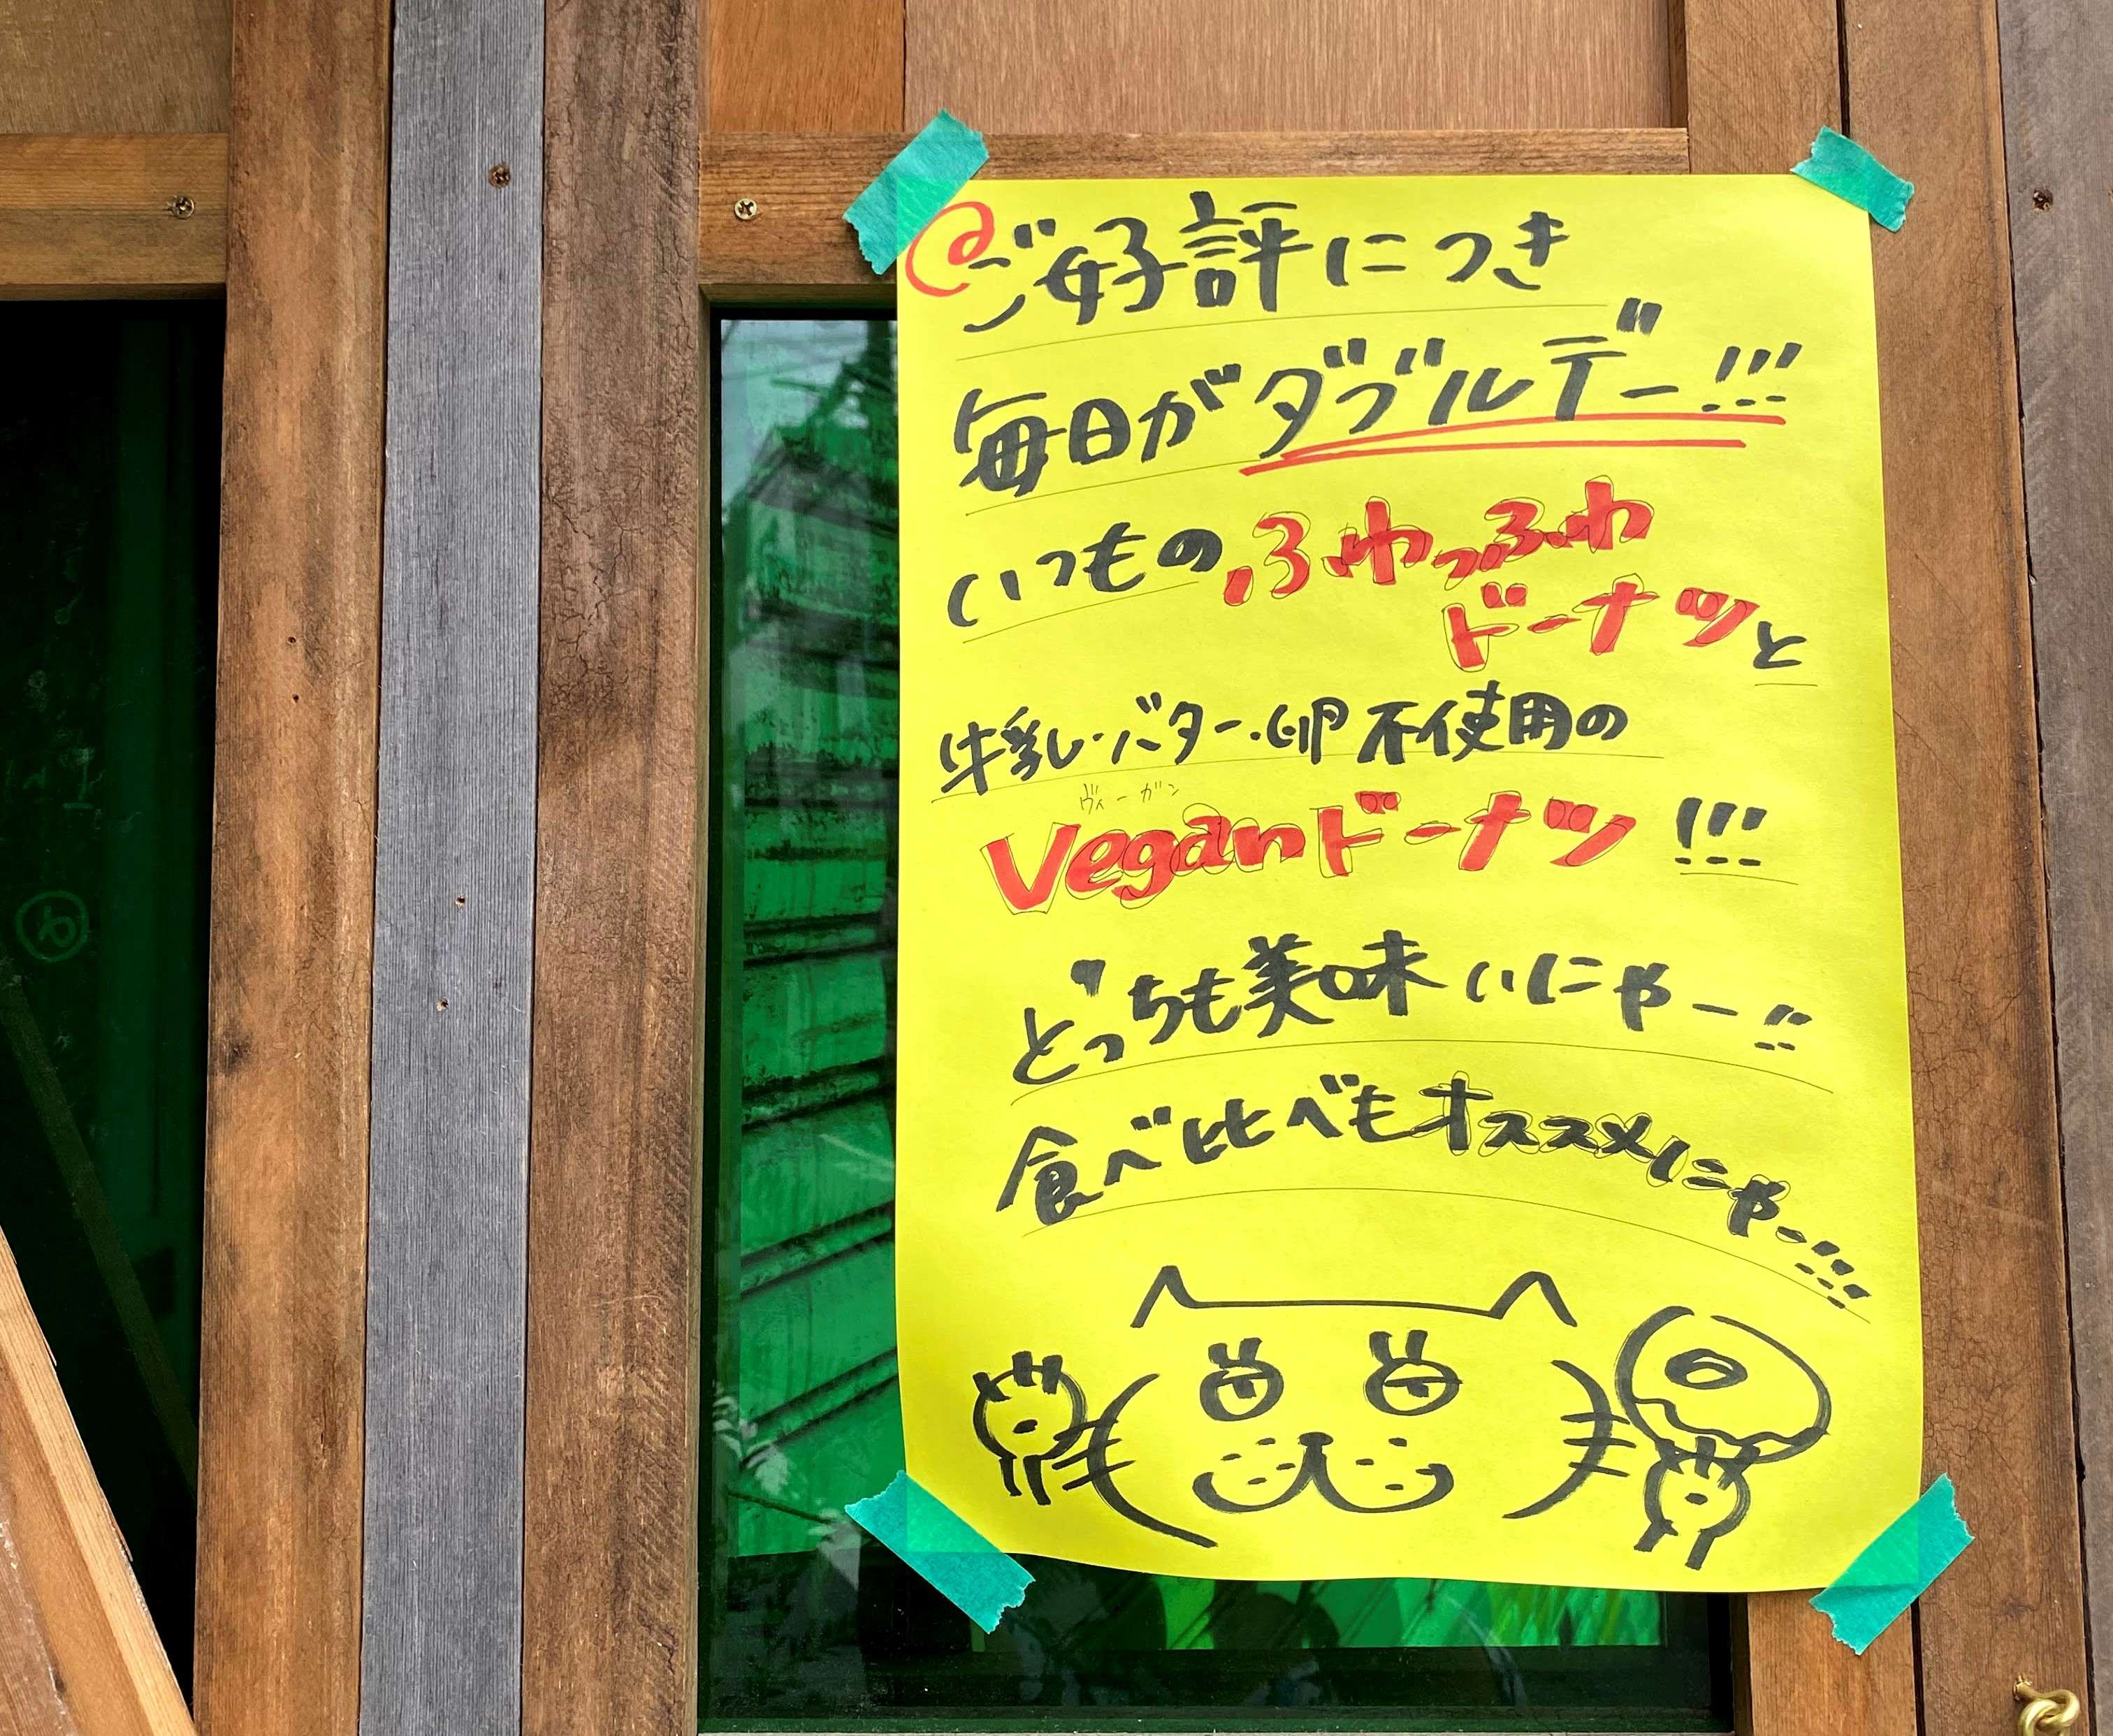 @ご好評につき
毎日がダブルデー!!!
いつものふわっふわ
ドーナツと
牛乳・バター・卵不使用の
ヴィーガン
Veganドーナツ!!!
どっちも美味いにゃー!!
食べ比べもオススメにゃー!!!